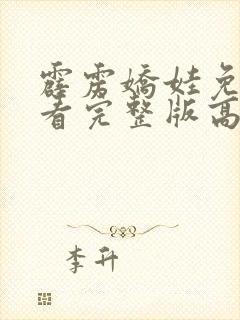 霹雳娇娃免
看完整版高
李升